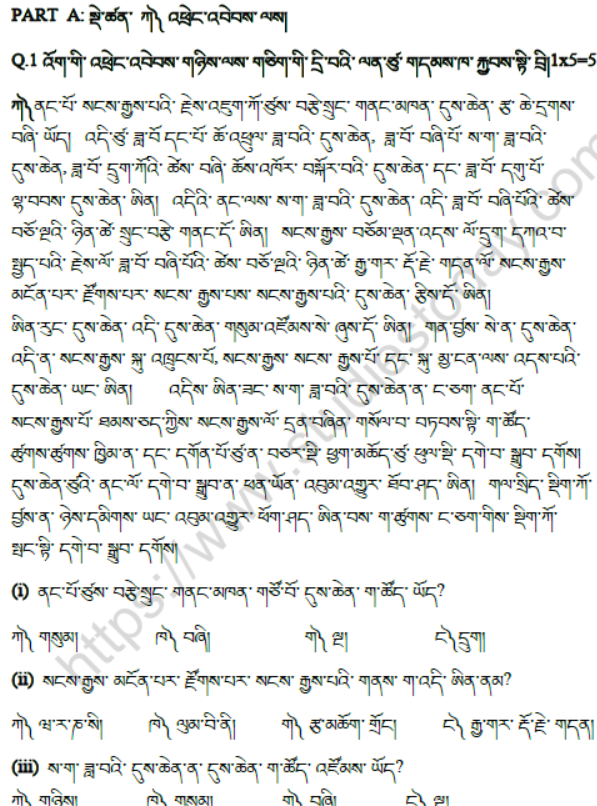 PART A: སྡེ་ཚན་ ཀ༽ འཕྲེང་འབེབས་ལས།
Q.1 འོག་གི་ འཕྲེང་འབེབས་གཉིས་ལས་ གཅིག་གི་ དྲི་བའི་ ལན་ཙུ་ གདམས་ཁ་ རྐྱབས་སྟི་ བྲི།1x5=5
ཀ༽ ནང་པོ་ སངས་རྒྱས་པའི་ རྗེས་འཇུག་ཀོ་ཙུས་ བརྩེ་སྲུང་ གནང་མཁན་ དུས་ཆེན་ རྩ་ ཆེ་དྲགས་
བཞི་ ཡོད། འདི་ཙུ་ ཟླ་བོ་དང་པོ་ ཆོ་འཕྲུལ་ ཟླ་བའི་ དུས་ཆེན, ཟླ་བོ་ བཞི་པོ་ ས་ག་ ཟླ་བའི་
དུས་ཆེན, ཟླ་བོ་ དྲུག་ཀོའི་ ཚེས་ བཞི་ ཆོས་འཁོར་ བསྐོར་བའི་ དུས་ཆེན་ དང་ ཟླ་བོ་ དགུ་པོ་
ལྷ་བབས་ དུས་ཆེན་ ཨིན། འདིའི་ ནང་ལས་ ས་ག་ ཟླ་བའི་ དུས་ཆེན་ འདི་ ཟླ་བོ་ བཞི་པོའི་ ཚེས་
བཅོ་ལྔའི་ ཉིན་ཚེ་ སྲུང་བརྩེ་ གནང་དོ་ ཨིན། སངས་རྒྱས་ བཅོམ་ལྡན་འདས་ ལོ་དྲུག་ དཀའ་བ་
སྤྱད་པའི་ རྗེས་ལོ་ ཟླ་བོ་ བཞི་པོའི་ ཚེས་ བཅོ་ལྔའི་ ཉིན་ཚེ་ རྒྱ་གར་ རྡོ་རྗེ་ གདན་ལོ་ སངས་རྒྱས་
མངོན་པར་ རྫོགས་པར་ སངས་ རྒྱས་པས་ སངས་རྒྱས་པའི་ དུས་ཆེན་ རྩིས་དོ་ ཨིན།
ཨིན་རུང་ དུས་ཆེན་ འདི་ དུས་ཆེན་ གསུམ་འཛོམས་སེ་ ཞུས་དོ་ ཨིན། གན་བྱོས་ སེ་ན་ དུས་ཆེན་
འདི་ན་ སངས་རྒྱས་ སྐུ་ འཁྲུངས་པོ, སངས་རྒྱས་ སངས་ རྒྱས་པོ་ དང་ སྐུ་ མྱ་ངན་ལས་ འདས་པའི་
དུས་ཆེན་ ཡང་ ཨིན། འདིས་ ཨིན་ཟང་ ས་ག་ ཟླ་བའི་ དུས་ཆེན་ན་ ང་ཅག་ ནང་པོ་
སངས་རྒྱས་པོ་ ཐམས་ཅད་ཀྱིས་ སངས་རྒྱས་ལོ་ དྲན་བཞིན་ གསོལ་བ་ བཏབས་སྟི་ ག་ཚོད་
ཚུགས་ཚུགས་ ཁྱིམ་ན་ དང་ དགོན་པོ་ཙུ་ན་ བཅར་སྡི་ ཕྱག་མཆོད་ཙུ་ ཕུལ་སྡི་ དགེ་བ་ སྒྲུབ་ དགོས།
དུས་ཆེན་ཙུའི་ ནང་ལོ་ དགེ་བ་ སྒྲུབ་ན་ ཕན་ཡོན་ འབུམ་འགྱུར་ ཐོབ་ཤད་ ཨིན། གལ་སྲིད་ སྡིག་ཀོ་
བྱོས་ན་ ཉེས་དམིགས་ ཡང་ འབུམ་འགྱུར་ ཕོག་ཤད་ ཨིན་བས་ ག་ཚུགས་ ང་ཅག་གིས་ སྡིག་ཀོ་
སྤང་སྟི་ དགེ་བ་ སྒྲུབ་ དགོས།
(i) ནང་པོ་ཙུས་ བརྩེ་སྲུང་ གནང་མཁན་ གཙོ་བོ་ དུས་ཆེན་ ག་ཚོད་ ཡོད?
ཀ༽ གསུམ། ཁ༽ བཞི། ག༽ ལྔ། ང༽དྲུག།
(ii) སངས་རྒྱས་ མངོན་པར་ རྫོགས་པར་ སངས་ རྒྱས་པའི་ གནས་ ག་འདི་ ཨིན་ནམ?
ཀ༽ ཝ་ར་ཎ་སི། ཁ༽ ལུམ་བི་ནི། ག༽ རྩ་མཆོག་ གྲོང། ང༽ རྒྱ་གར་ རྡོ་རྗེ་ གདན།
(iii) ས་ག་ ཟླ་བའི་ དུས་ཆེན་ན་ དུས་ཆེན་ ག་ཚོད་ འཛོམས་ ཡོད?
ཀ༽ གཉིས། ཁ༽ གསུམ། ག༽ བཞི། ང༽ ལྔ།